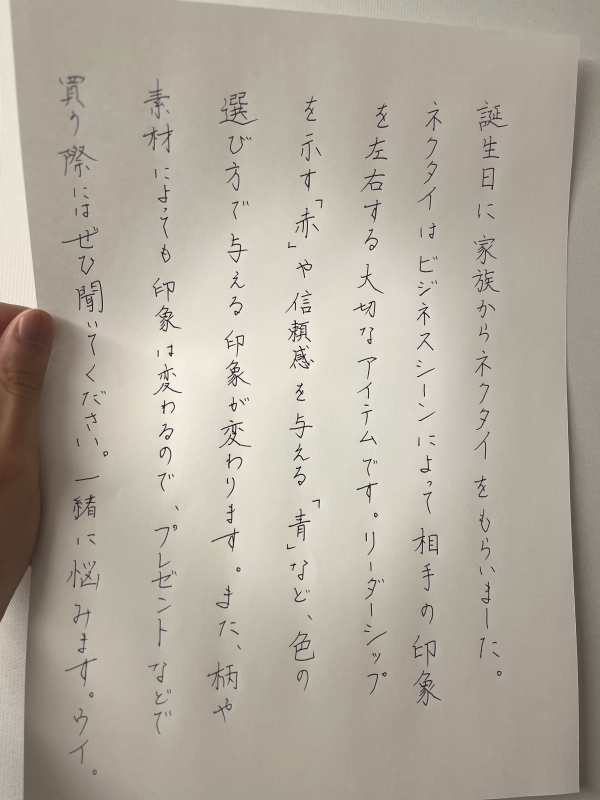 誕生日に家族からネクタイをもらいました。
ネクタイはビジネスシーンによって相手の印象
を左右する大切なアイテムです。リーダーシップ
を示す「赤」や信頼感を与える「青」など、色の
選び方で与える印象が変わります。また、柄や
素材によっても印象は変わるので、プレゼントなどで
買う際にはぜひ聞いてください。一緒に悩みます。ウイ。